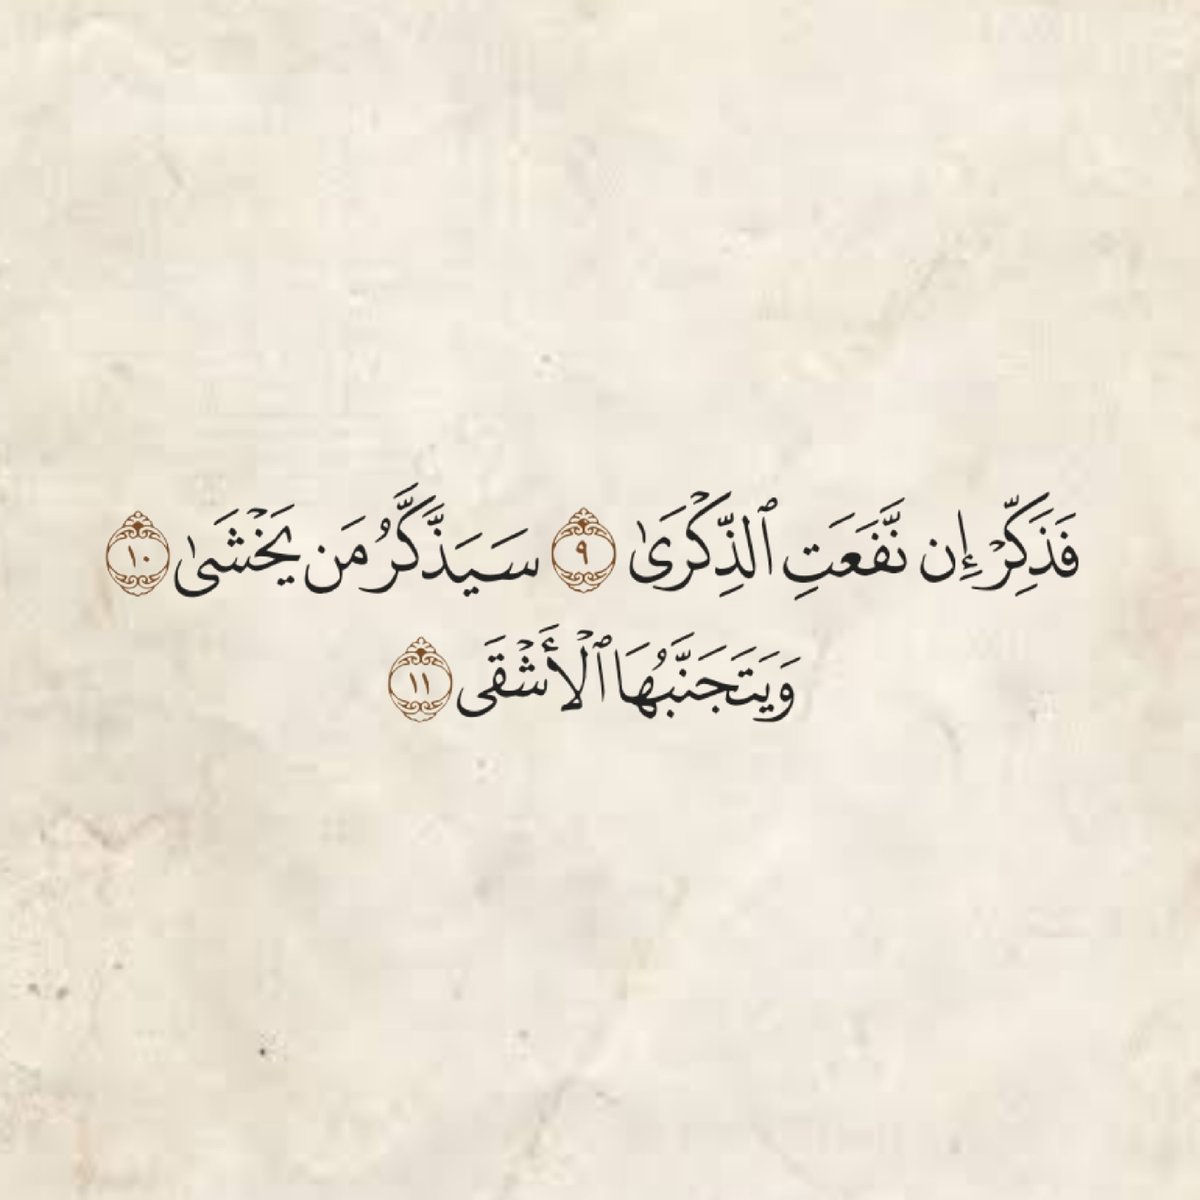 فَذَكِّرْ إِن نَّفَعَتِ ٱلذِّكْرَىٰ ٩ سَيَذَّكَّرُ مَن يَخْشَىٰ ١٠
وَيَتَجَنَّبُهَا ٱلْأَشْقَى ١١